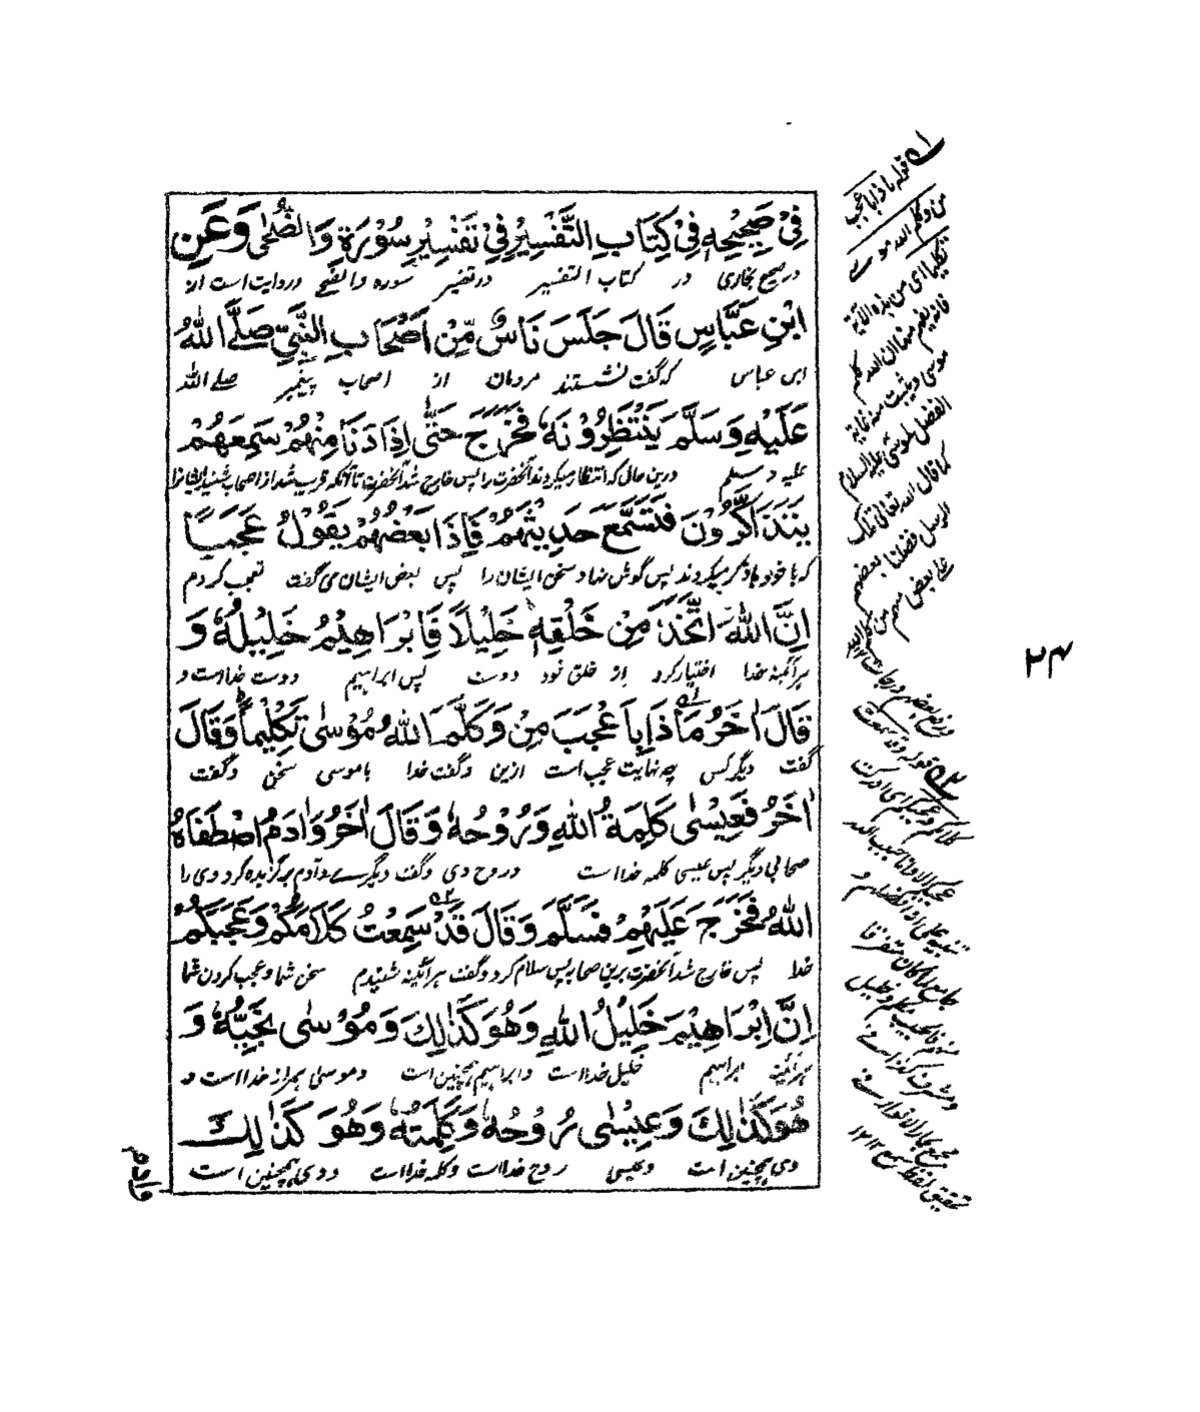 فِيْ صَحِيْحِهٖ فِيْ كِتَابِ التَّفْسِيْرِ فِيْ تَفْسِيْرِ سُوْرَةِ وَالضُّحٰى وَعَنِ
در صحیح بخاری در کتاب التفسیر در تفسیر سوره والضحی و روایت است از
ابْنِ عَبَّاسٍ قَالَ جَلَسَ نَاسٌ مِّنْ اَصْحَابِ النَّبِيِّ صَلَّے اللّٰهُ
ابن عباس که گفت نشستند مردمان از اصحاب پیغمبر صلے الله
عَلَيْهِ وَسَلَّمَ يَنْتَظِرُوْنَهٗ فَخَرَجَ حَتّٰى اِذَا دَنَا مِنْهُمْ سَمِعَهُمْ
علیه و سلم درین حال که انتظار میکردند آنحضرت را پس خارج شد آنحضرت تا آنکه قریب شد از اصحاب شنید ایشانرا
يَتَذَاكَرُوْنَ فَتَسَمَّعَ حَدِيْثَهُمْ فَاِذَا بَعْضُهُمْ يَقُوْلُ عَجَبًا
که با خود ها ذکر میکردند پس گوش نهاد سخن ایشان را پس بعض ایشان می گفت تعجب کردم
اِنَّ اللّٰهَ اتَّخَذَ مِنْ خَلْقِهٖ خَلِيْلًا فَاِبْرَاهِيْمُ خَلِيْلُهٗ وَ
هر آئینه خدا اختیار کرد از خلق خود دوست پس ابراهیم دوست خداست و
قَالَ اٰخَرُ مَاذَا بِاَعْجَبَ مِنْ وَكَلَّمَ اللّٰهُ مُوْسٰى تَكْلِيْمًا وَقَالَ
گفت دیگر کس چه نهایت عجب است ازین و گفت خدا با موسی سخن و گفت
اٰخَرُ فَعِيْسٰى كَلِمَةُ اللّٰهِ وَرُوْحُهٗ وَقَالَ اٰخَرُ وَاٰدَمُ اصْطَفَاهُ
صحابی دیگر پس عیسی کلمه خدا است و روح وی و گفت دیگرے و آدم برگزیده کرد وی را
اللّٰهُ فَخَرَجَ عَلَيْهِمْ فَسَلَّمَ وَقَالَ قَدْ سَمِعْتُ كَلَامَكُمْ وَعَجَبَكُمْ
خدا پس خارج شد آنحضرت برین صحابه پس سلام کرد و گفت هر آئینه شنیدم سخن شما و عجب کردن شما
اِنَّ اِبْرَاهِيْمَ خَلِيْلُ اللّٰهِ وَهُوَ كَذٰلِكَ وَمُوْسٰى نَجِيُّهٗ وَ
هر آئینه ابراهیم خلیل خدا است و ابراهیم همچنین است و موسی همراز خدا است و
هُوَ كَذٰلِكَ وَعِيْسٰى رُوْحُهٗ وَكَلِمَتُهٗ وَهُوَ كَذٰلِكَ
وی همچنین است و عیسی روح خدا است و کلمه خدا است و وی همچنین است
وآدم
قوله ماذا باعجب
من وكلم الله موسے
تكليما اى من هذه الآية
فانه يفهم منها ان الله كلم
موسى
الفضل لموسى عليه السلام
كما قال الله تعالى تلك
الرسل فضلنا بعضهم
على بعض منهم من
ورفع بعضهم درجات
قوله قد سمعت
كلامكم وعجبكم
۲۴